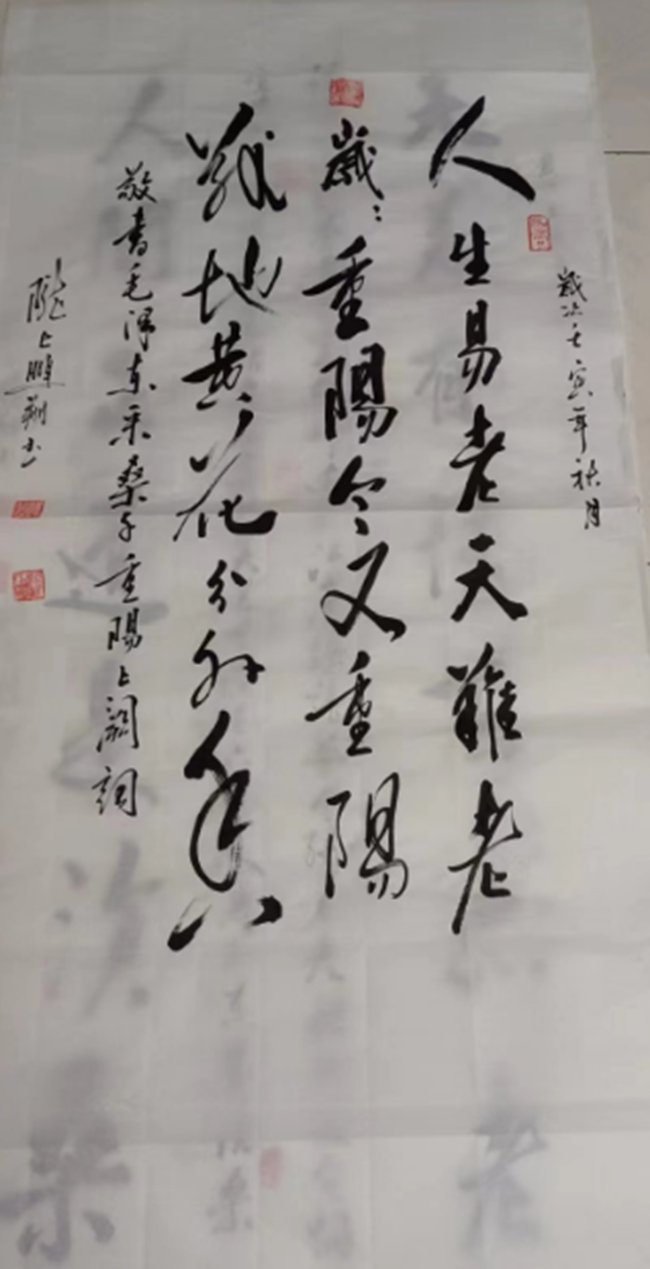 歲次壬寅年秋月
人生易老天難老
歲:重陽今又重陽
戰地黄花分外香
敬書毛澤东采桑子重陽上阕詞
隴上鵬翔书